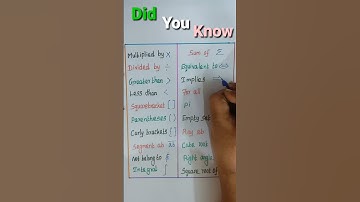 Did You Know
Multiplied by ×
Divided by ÷
Greater than >
Less than <
Squarebracket [ ]
Parentheses ( )
Curly brackets { }
Segment ab
Not belong to ∉
Integral ∫
Sum of Σ
Equivalent to ⇔
Implies ⇒
For all
Pi
Empty set
Ray ab
Cube root
Right angle
Square root of